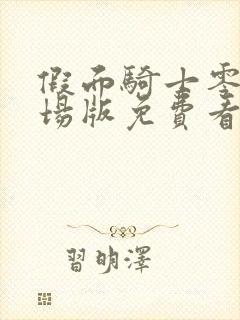 假面騎士零
場版免費看
習明澤